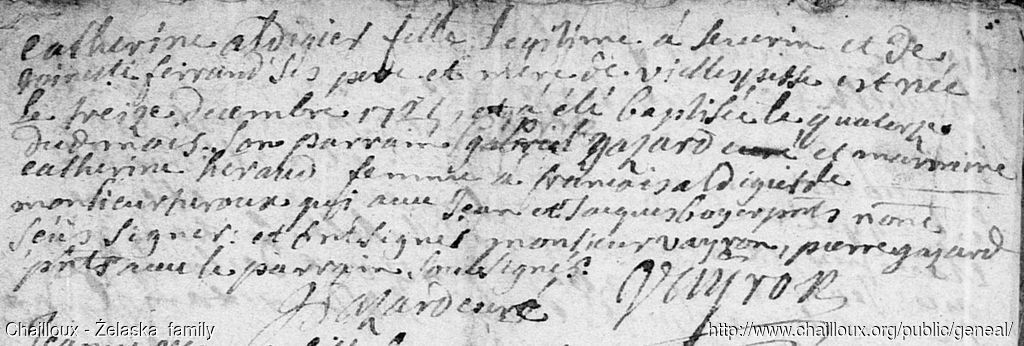 catherine aldigier fille legitime á severin et de
ferrand ses pere et mere de viellespesse est née
le treize decembre et á été baptisée le quatorze
dud. mois. son parrain gabriel gazard curé et marraine
catherine heraud femme a francois aldigier de
qui avec Jean et Jacques boyer pnts nont
seus signer. et ont signes monsieur vayron, pierre gazard
pnts avec le parrain soussignés.
Gazard curé Vayron
Chailloux - Żelaska family
http://www.chailloux.org/public/geneal/